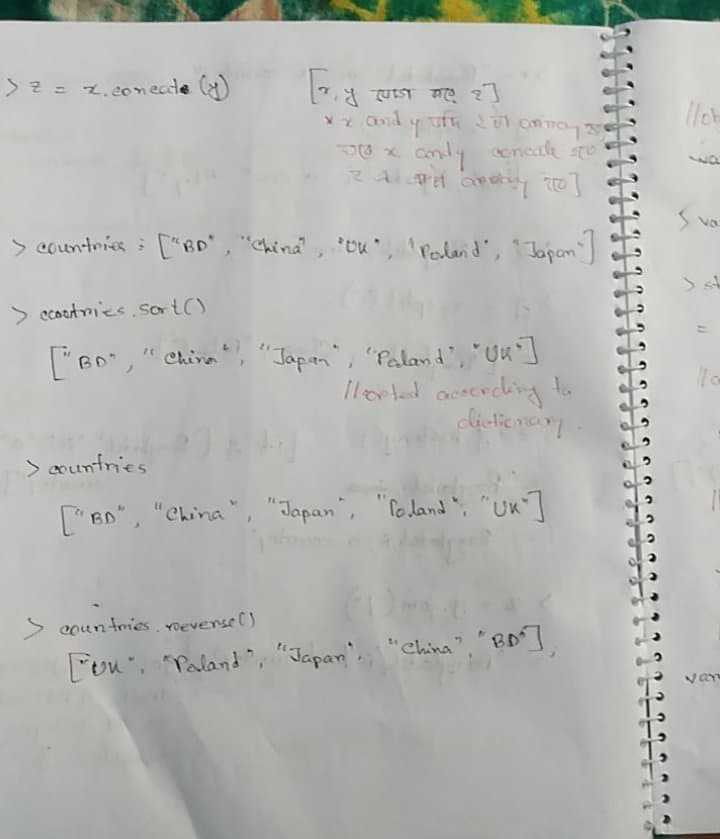 > z = x.concate (y)
[x, y যোগ করে z]
x x and y যদি ২টা array হয়
তবে x and y concate হয়ে
array হবে]
> countries : ["BD", "China", "UK", "Poland", "Japan"]
> countries.sort()
["BD", "China", "Japan", "Poland", "UK"]
//sorted according to
dictionary.
> countries
["BD", "China", "Japan", "Poland", "UK"]
> countries.reverse()
["UK", "Paland", "Japan", "China", "BD"],
wa
$ va
> st
=
var